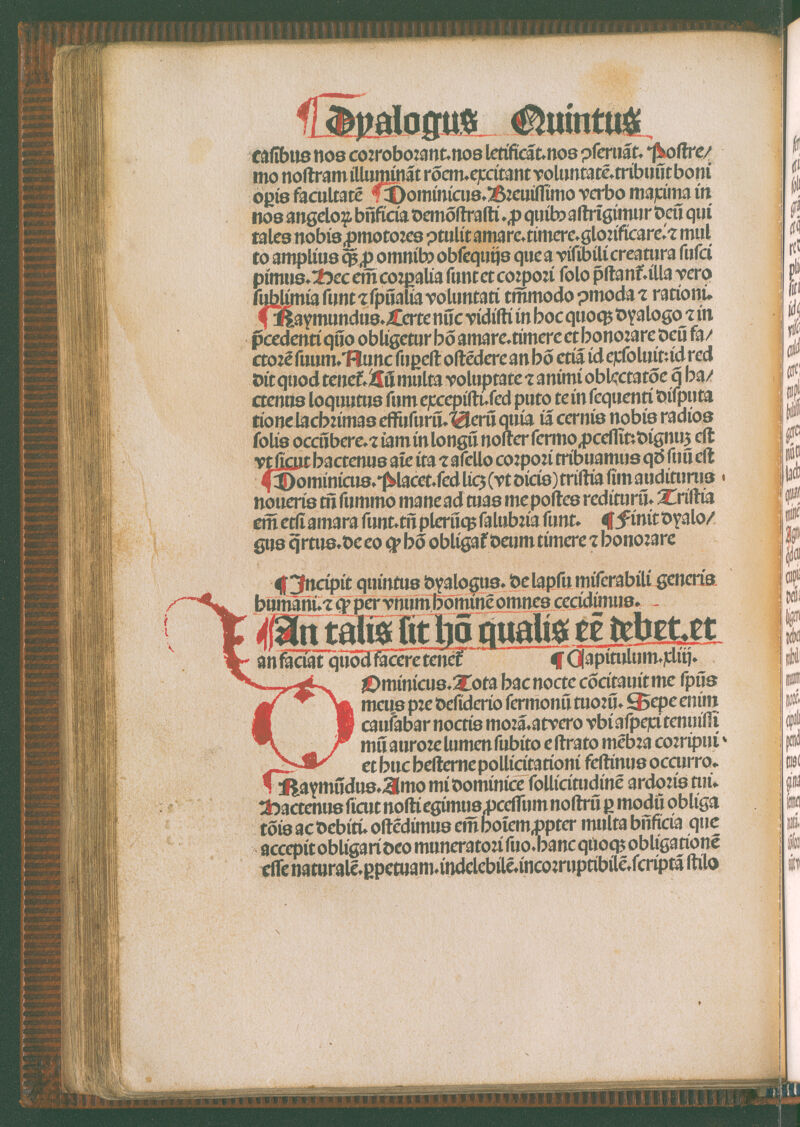 ¶ Dyalogus Quintus
casibus nos corroborant.nos letificāt.nos ꝯseruāt. Postre/
mo nostram illumināt rōem.excitant voluntatē.tribuūt boni
opis facultatē ¶ Dominicus. Breuissimo verbo maxima in
nos angeloꝝ bn̄ficia demōstrasti. ꝓ quibꝰ astrīgimur deū qui
tales nobis ꝓmotores ꝯtulit amare.timere.glorificare. ⁊ mul
to amplius qȝ̄ ꝓ omnibꝰ obsequijs que a visibili creatura susci
pimus. Hec em̄ corꝑalia sunt et corpori solo p̄stant᷑.illa vero
sublimia sunt ⁊ spūalia voluntati tm̄modo ꝯmoda ⁊ rationi.
¶ Raymundus. Certe nūc vidisti in hoc quoqȝ dyalogo ⁊ in
p̄cedenti qūo obligetur hō amare.timere et honorare deū fa/
ctorē suum. Nunc suꝑest ostēdere an hō etiā id exsoluit: id red
dit quod tenet᷑. Aū multa voluptate ⁊ animi oblectatōe q̄ ha/
ctenus loquutus sum excepisti.sed puto te in sequenti disputa
tione lachrimas effusurū. Uerū quia iā cernis nobis radios
solis occūbere.⁊ iam in longū noster sermo ꝓcessit: dignuȝ est
vt sicut hactenus aīe ita ⁊ asello corpori tribuamus qđ suū est
¶ Dominicus. Placet.sed licȝ (vt dicis) tristia sim auditurus .
noueris tn̄ summo mane ad tuas me postes rediturū. Tristia
em̄ etsi amara sunt.tn̄ plerūqȝ salubria sunt. ¶ Finit dyalo/
gus q̄rtus.de eo ꝙ hō obligat᷑ deum timere ⁊ honorare
¶ Incipit quintus dyalogus. de lapsu miserabili generis
humani.⁊ ꝙ per vnum hominē omnes cecidimus.
¶ An talis sit hō qualis eē debet.et
an faciat quod facere tenet᷑ ¶ Capitulum.xliij.
Ominicus. Tota hac nocte cōcitauit me spūs
meus pre desiderio sermonū tuorū. Sepe enim
causabar noctis morā.at vero vbi aspexi tenuissi
mū aurore lumen subito e strato mēbra corripui.
et huc hesterne pollicitationi festinus occurro.
¶ Raymūdus. Amo mi dominice sollicitudinē ardoris tui.
Hactenus sicut nosti egimus ꝓcessum nostrū ꝑ modū obliga
tōis ac debiti. ostēdimus em̄ hoīem ꝓpter multa bn̄ficia que
accepit obligari deo muneratori suo.hanc quoqȝ obligationē
esse naturalē.ꝑpetuam.indelebilē.incorruptibilē.scriptā stilo